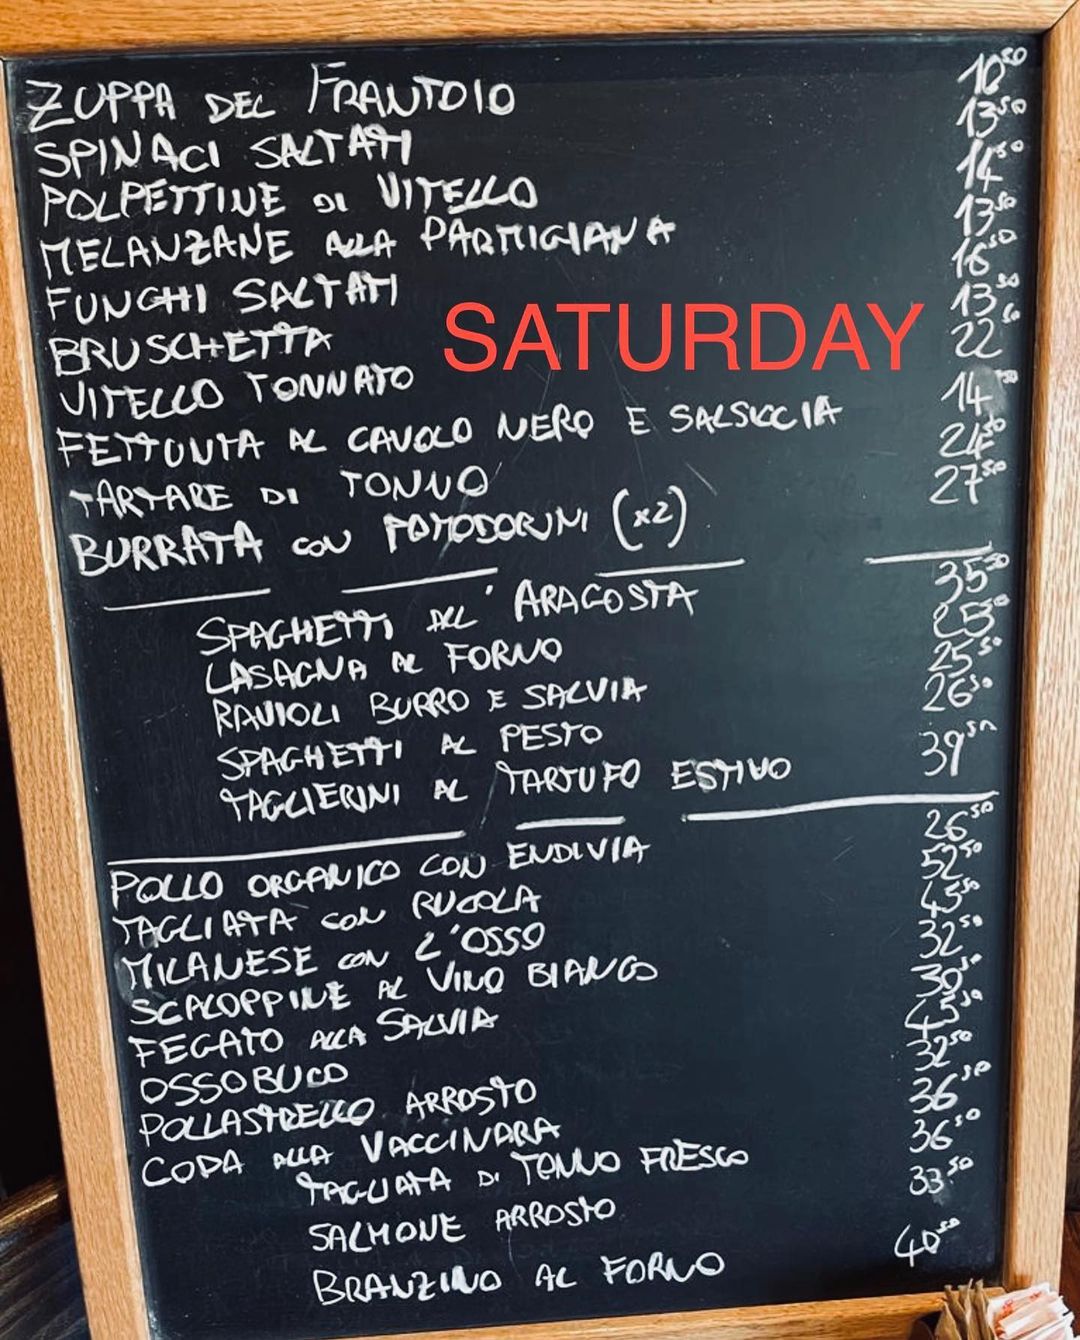 ZUPPA DEL FRANTOIO 10⁵⁰
SPINACI SALTATI 13⁵⁰
POLPETTINE DI VITELLO 14⁵⁰
MELANZANE ALLA PARMIGIANA 13⁵⁰
FUNGHI SALTATI 16⁵⁰
BRUSCHETTA 13⁵⁰
SATURDAY
VITELLO TONNATO 22⁵⁰
FETTUNTA AL CAVOLO NERO E SALSICCIA 14⁵⁰
TARTARE DI TONNO 24⁵⁰
BURRATA CON POMODORINI (x2) 27⁵⁰
SPAGHETTI ALL'ARAGOSTA 35⁵⁰
LASAGNA AL FORNO 25⁵⁰
RAVIOLI BURRO E SALVIA 25⁵⁰
SPAGHETTI AL PESTO 26⁵⁰
TAGLIERINI AL TARTUFO ESTIVO 39⁵⁰
POLLO ORGANICO CON ENDIVIA 26⁵⁰
TAGLIATA CON RUCOLA 52⁵⁰
MILANESE CON L'OSSO 45⁵⁰
SCALOPPINE AL VINO BIANCO 32⁵⁰
FEGATO ALLA SALVIA 30⁵⁰
OSSOBUCO 45⁵⁰
POLLASTRELLO ARROSTO 32⁵⁰
CODA ALLA VACCINARA 36⁵⁰
TAGLIATA DI TONNO FRESCO 36⁵⁰
SALMONE ARROSTO 33⁵⁰
BRANZINO AL FORNO 40⁵⁰